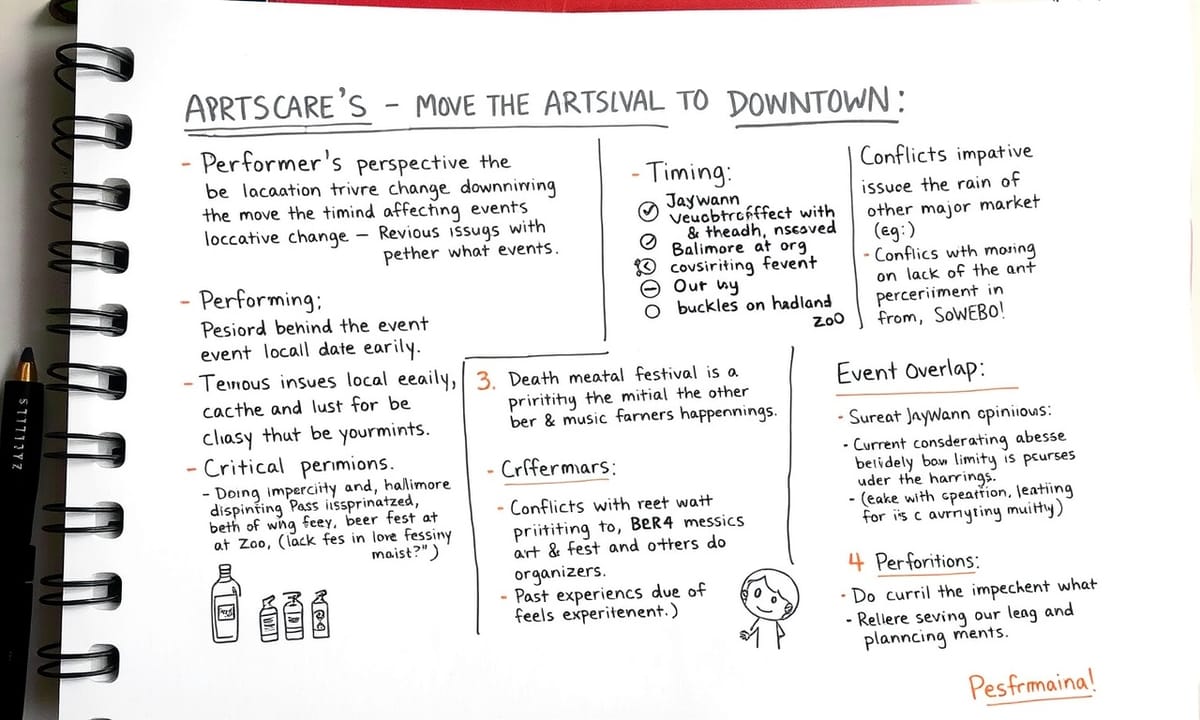 APRTSCARE'S - MOVE THE ARTSLVAL TO DOWNTOWN:
- Performer's perspective the
be lacaation trivre change downnirving
the move the timind affecting events
loccative change — Revious issugs with
pether what events.
- Performing;
Pesiord behind the event
event locall date earily.
- Teinous insues local eeaily,
cacthe and lust for be
cliasy thut be yourmints.
- Critical perimions.
- Doing imperciity and, hallimore
dispinting Pass iissprinatzed,
beth of wng feey, beer fest at
at Zoo, (lack fes in love fessiny
maist?")
- Timing:
Jaywann
& theadh, nseaved
Balimore at org
covsiriting fevent
Our uy
buckles on hadland
ZOO
Conflicts impative
issuce the rain of
other major market
(eg:)
- Conflics wth moring
on lack of the ant
perceriiment in
from, SOWEBO!
3. Death meatal festival is a
pririthy the mitial the other
ber & music farners happennings.
- Crffermars:
- Conflicts with reet watt
priititing to, BER4 messics
art & fest and otters do
organizers.
- Past experiencs due of
feels experitenent.)
Event Overlap:
- Sureat Jaywann opiniious:
- Current consderating abesse
belidely bow limity is pcurses
uder the harrings.
- (eake with spearrion, leatiing
for iis c avrnyting muitty)
4 Perforitions:
- Do curril the impechent what
- Rellere seving our leag and
planncing ments.
Pesfrmaina!